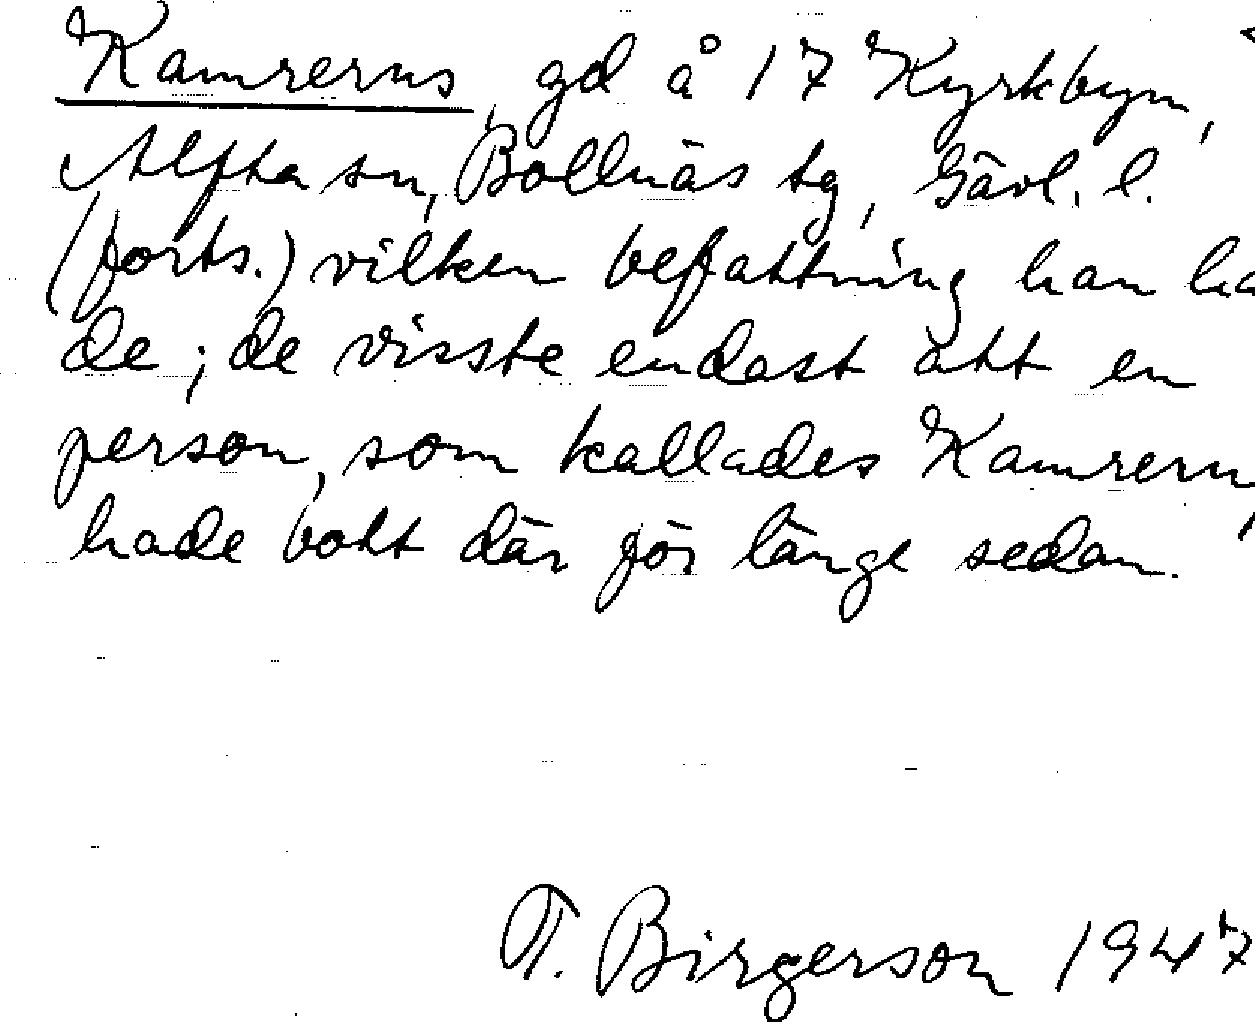 Kamrerns, gd å 17 Kyrkbyn,
Alfta sn, Bollnäs tg, Gävl. l.
(forts.) vilken befattning han ha
de; de visste endast att en
person, som kallades Kamrern,
hade bott där för länge sedan.
T. Birgerson 1947